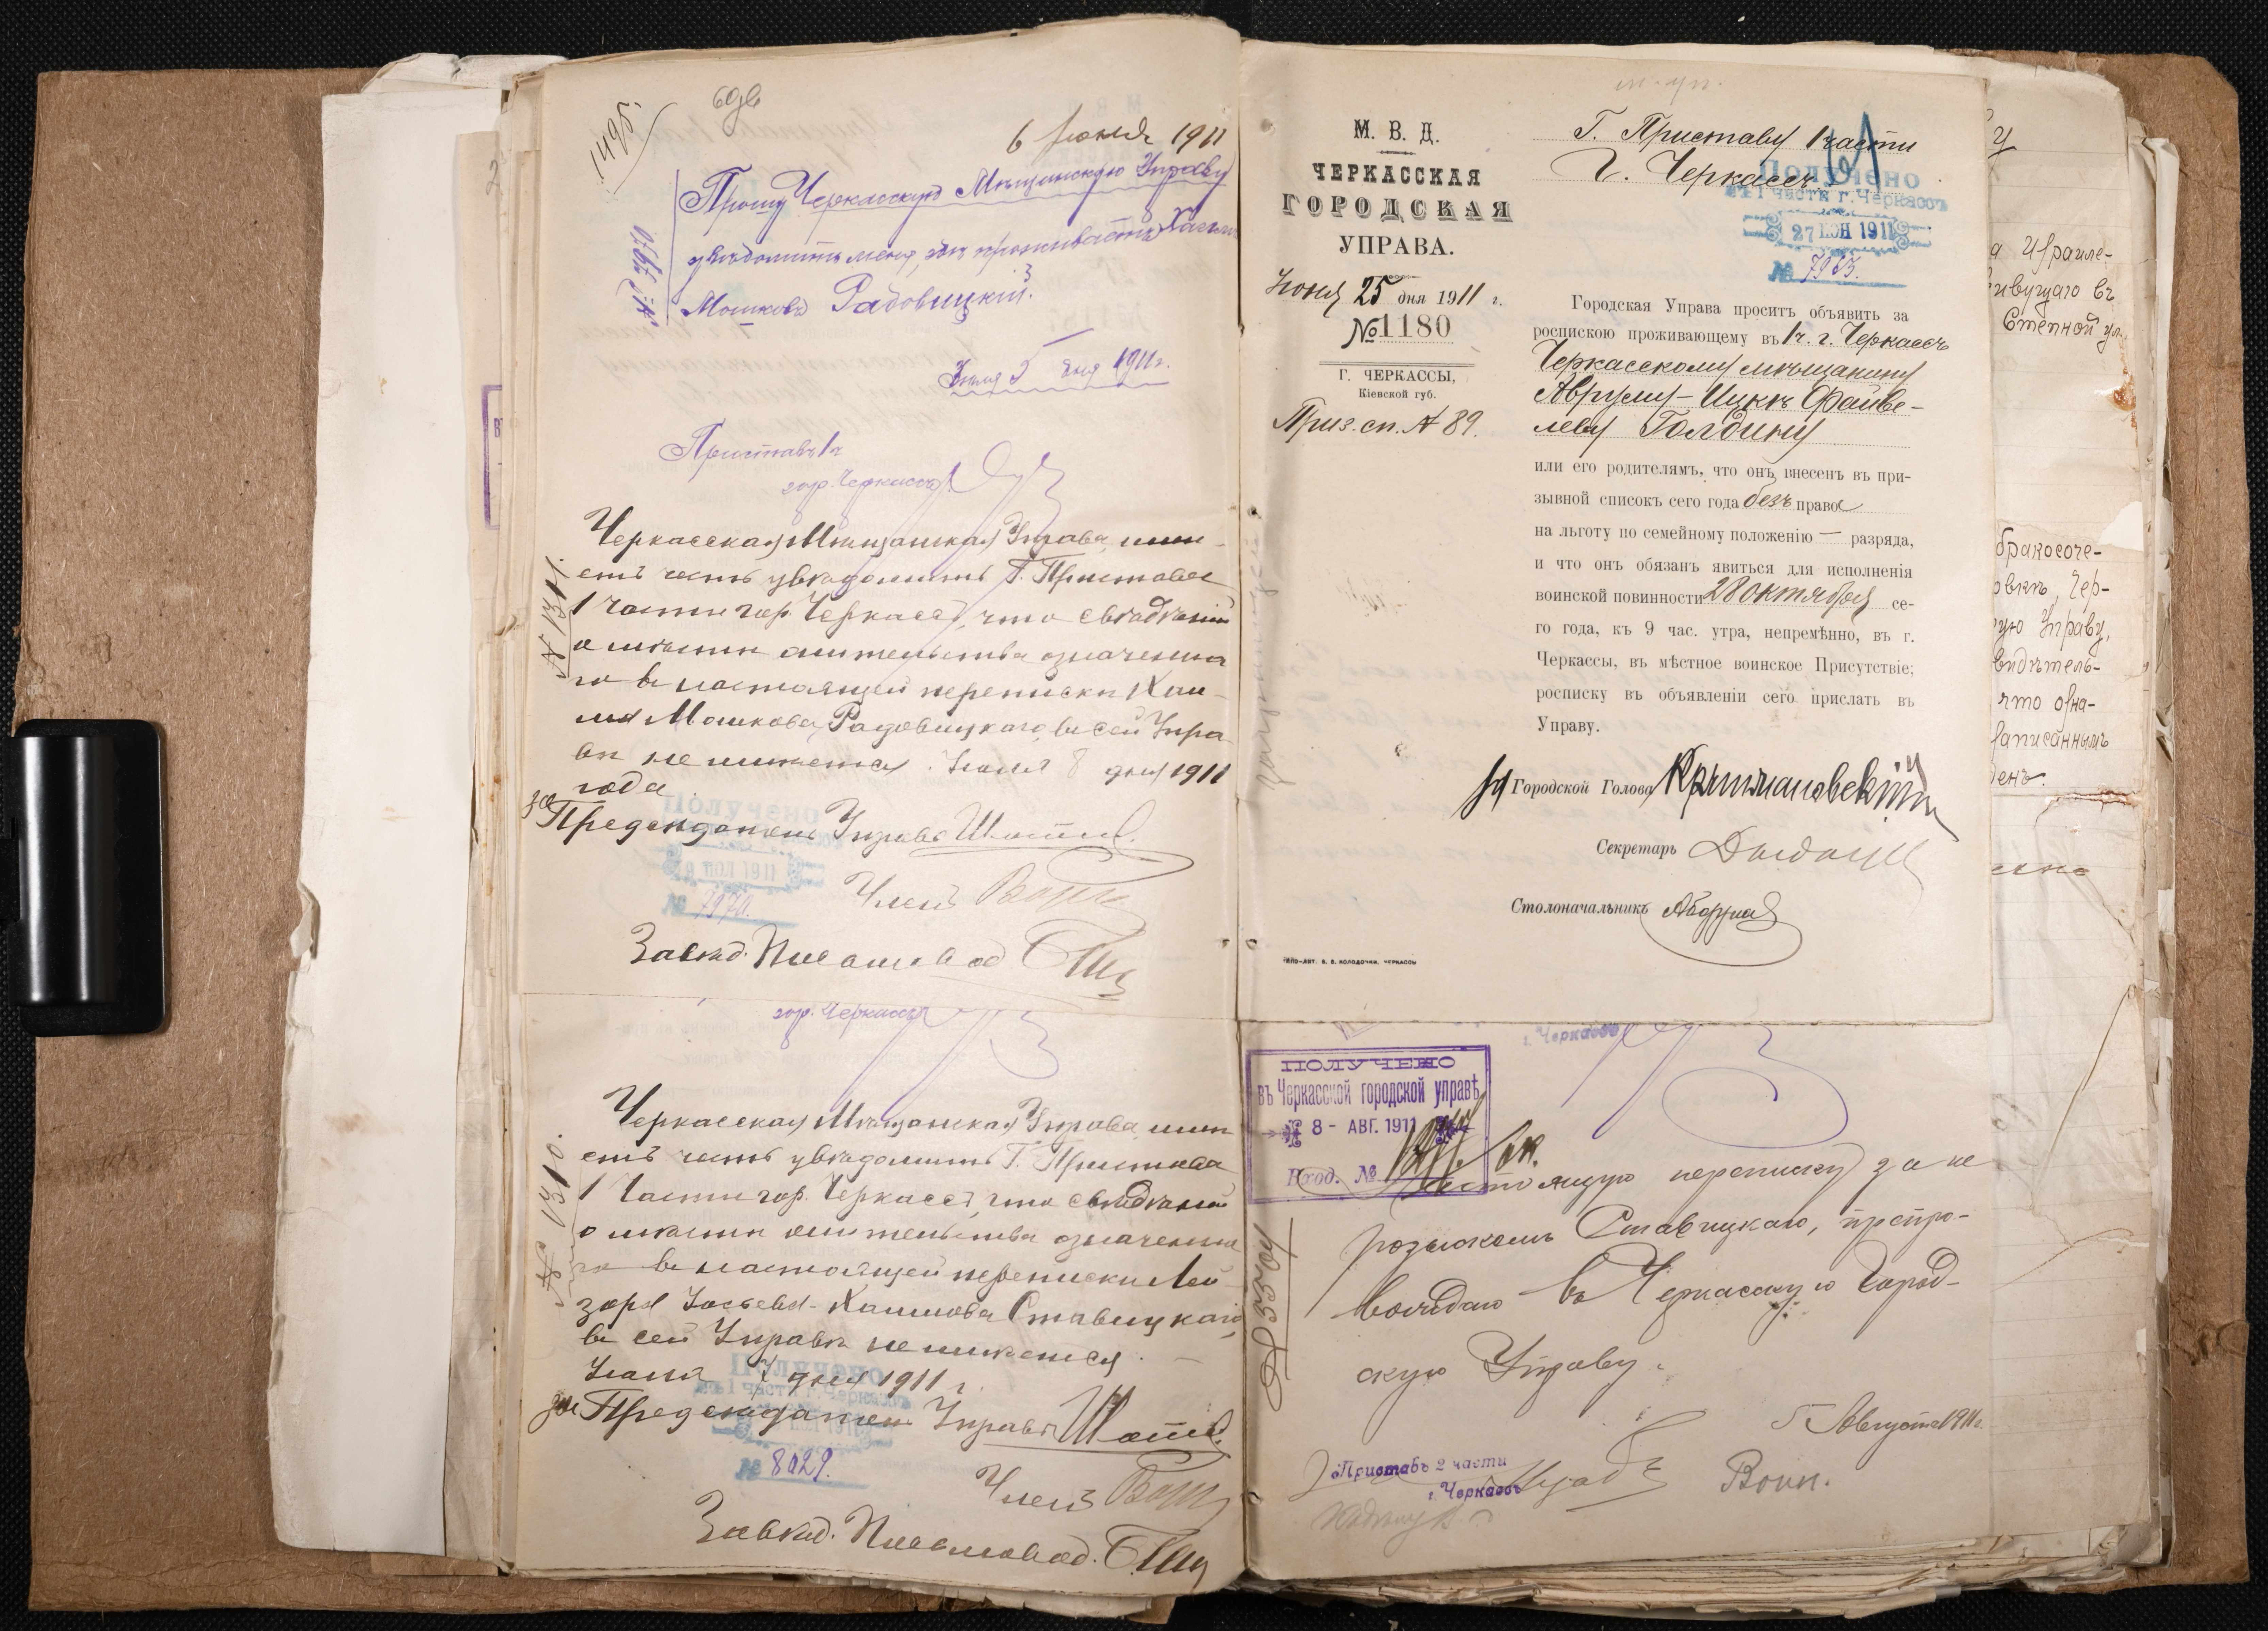 1495.
69об
6 Июня 1911
Прошу Черкасскую Мѣщанскую Управу
увѣдомить меня, гдѣ проживаетъ Хаимъ
Мошковъ Радовицкій.
№ 7970
Июля 5 дня 1911 г.
Приставъ 1 ч
гор. Черкассъ
Черкасская Мѣщанская Управа имѣ-
етъ честь увѣдомить Г. Пристава
1 части гор. Черкассъ, что свѣдѣній
о мѣстѣ жительства означенна
го въ настоящей перепискѣ Хаи-
ма Мошкова Радовицкаго, въ сей Упра
вѣ не имѣется. Июля 8 дня 1911
года
№ 1311.
за Предсѣдателя Управы
Получено
9 ИЮЛ 1911
№ 7970.
Членъ
Завѣд. Письмовод.
гор. Черкассъ
Черкасская Мѣщанская Управа имѣ
етъ честь увѣдомить Г. Пристава
1 части гор. Черкассъ, что свѣдѣній
о мѣстѣ жительства означенна
го въ настоящей перепискѣ Лей
зора Иосьева-Хаимова Ставицкаго,
въ сей Управѣ не имѣется.
Июля 7 дня 1911 г.
№ 1310.
за Предсѣдателя Управы
Получено
въ 1 части г. Черкассъ
№ 8029.
Членъ
Завѣд. Письмовод.
М. В. Д.
ЧЕРКАССКАЯ
ГОРОДСКАЯ
УПРАВА.
Июня 25 дня 1911 г.
№ 1180
Г. ЧЕРКАССЫ,
Кіевской губ.
Приз. сп. № 89.
Г. Приставу 1 части
г. Черкассъ
Получено
въ 1 части г. Черкассъ
27 ІЮН 1911
№ 7963.
Городская Управа проситъ объявить за
роспискою проживающему въ 1 ч. г. Черкассъ
Черкасскому мѣщанину
Аврулу-Ицкѣ Файве-
леву Голдину
или его родителямъ, что онъ внесенъ въ при-
зывной списокъ сего года безъ права
на льготу по семейному положенію — разряда,
и что онъ обязанъ явиться для исполненія
воинской повинности 28 октября се-
го года, къ 9 час. утра, непремѣнно, въ г.
Черкассы, въ мѣстное воинское Присутствіе;
росписку въ объявленіи сего прислать въ
Управу.
Городской Голова
Секретарь
Столоначальникъ
ПОЛУЧЕНО
въ Черкасской городской управѣ
8 - АВГ. 1911
Вход. №
Настоящую переписку за не
розыскомъ Ставицкаго, препро-
вождаю въ Черкасскую Город-
скую Управу.
№ 3504
5 Августа 1911 г.
Приставъ 2 части
г. Черкассъ
Воин.
у
а Израиле-
ивущаго въ
Степной ул.
бракосоче-
овкѣ, Чер-
ую Управу,
видѣтель-
что озна-
записаннымъ
денъ.